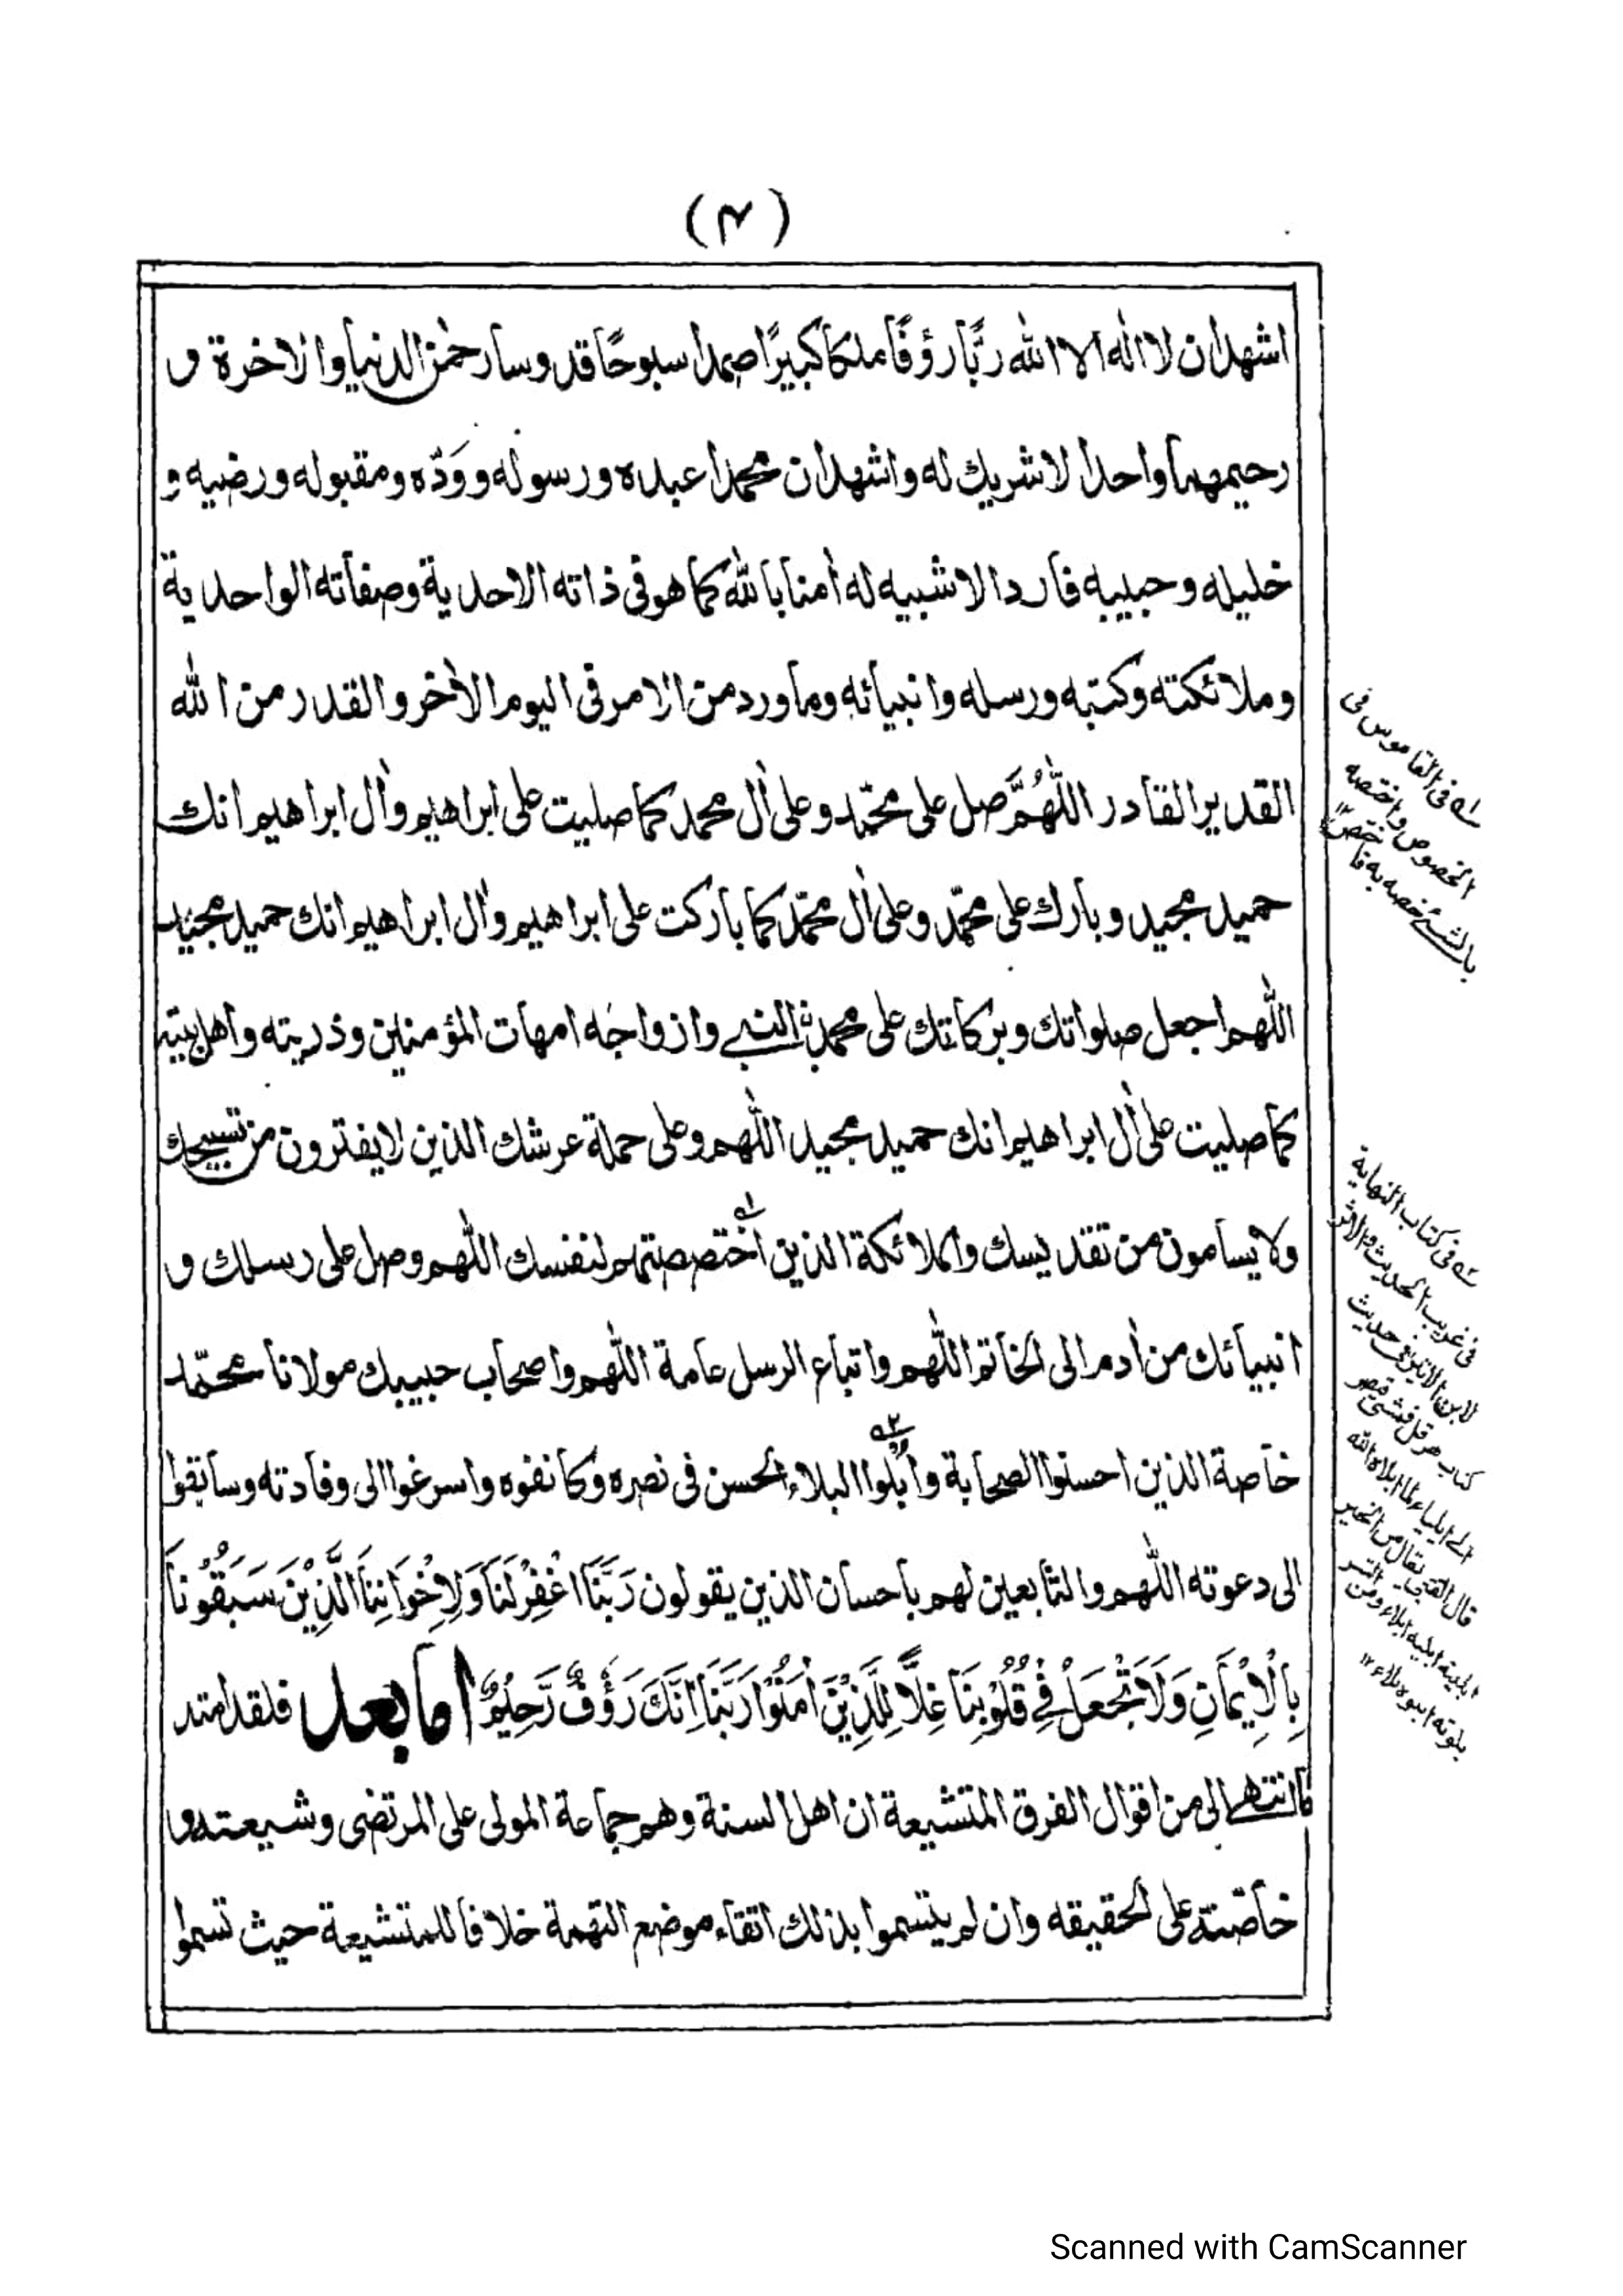 (۴)
اشهد ان لا اله الا الله ربًّا رؤفًا ملكا كبيرًا صمدا سبوحًا قدوسا رحمٰن الدنيا والاخرة و
رحيمهما واحدا لاشريك له واشهد ان محمدا عبده ورسوله ووَدّه ومقبوله ورضيه و
خليله وحبيبه فاردا لاشبيه له اٰمنا بالله كما هو فى ذاته الاحدية وصفاته الواحدية
وملائكته وكتبه ورسله وانبيائه وما ورد من الامر فى اليوم الاٰخر والقدر من الله
القدير القادر اللّٰهُمَّ صل على محمّد وعلى اٰل محمد كما صليت على ابراهيم واٰل ابراهيم انك
حميد مجيد وبارك على محمّد وعلى اٰل محمّد كما باركت على ابراهيم واٰل ابراهيم انك حميد مجيد
اللّٰهم اجعل صلواتك وبركاتك على محمد ن النبى وازواجه امهات المؤمنين وذريته واهل بيته
كما صليت على اٰل ابراهيم انك حميد مجيد اللّٰهم وعلى حملة عرشك الذين لايفترون من تسبيحك
ولا يسامون من تقديسك والملائكة الذين اختصصتهم لنفسك اللّٰهم وصل على رسلك و
انبيائك من اٰدم الى الخاتم اللّٰهم واتباع الرسل عامة اللّٰهم واصحاب حبيبك مولانا محمّد
خاصة الذين احسنوا الصحابة وابلوا البلاء الحسن فى نصره وكانفوه واسرغوا الى وفادته وسابقوا
الى دعوته اللّٰهم والتابعين لهم باحسان الذين يقولون رَبَّنَا اغْفِرْ لَنَا وَلِاِخْوَانِنَا الَّذِيْنَ سَبَقُوْنَا
بِالْاِيْمَانِ وَلَا تَجْعَلْ فِىْ قُلُوْبِنَا غِلًّا لِّلَّذِيْنَ اٰمَنُوْا رَبَّنَا اِنَّكَ رَؤُفٌ رَّحِيْمٌ اما بعد فلقد امتد
فانتهى الى من اقوال الفرق المتشيعة ان اهل السنة وهم جماعة المولى على المرتضى وشيعته و
خاصته على الحقيقه وان لم يتسموا بذلك اتقاء موضع التهمة خلافا للمتشيعة حيث تسموا
له فى القاموس فى
الخصوص واختصه
بالشئ خصه به
ــه فى كتاب النهاية
فى غريب الحديث والاثر
لابن الاثير وفى حديث
كتاب هرقل فمشى قيصر
الى ايلياء لما ابلاه الله
قال القتيبى يقال من الخير
ابليته ابليه ابلاء ومن الشر
بلوته ابلوه بلاء ١٢
Scanned with CamScanner